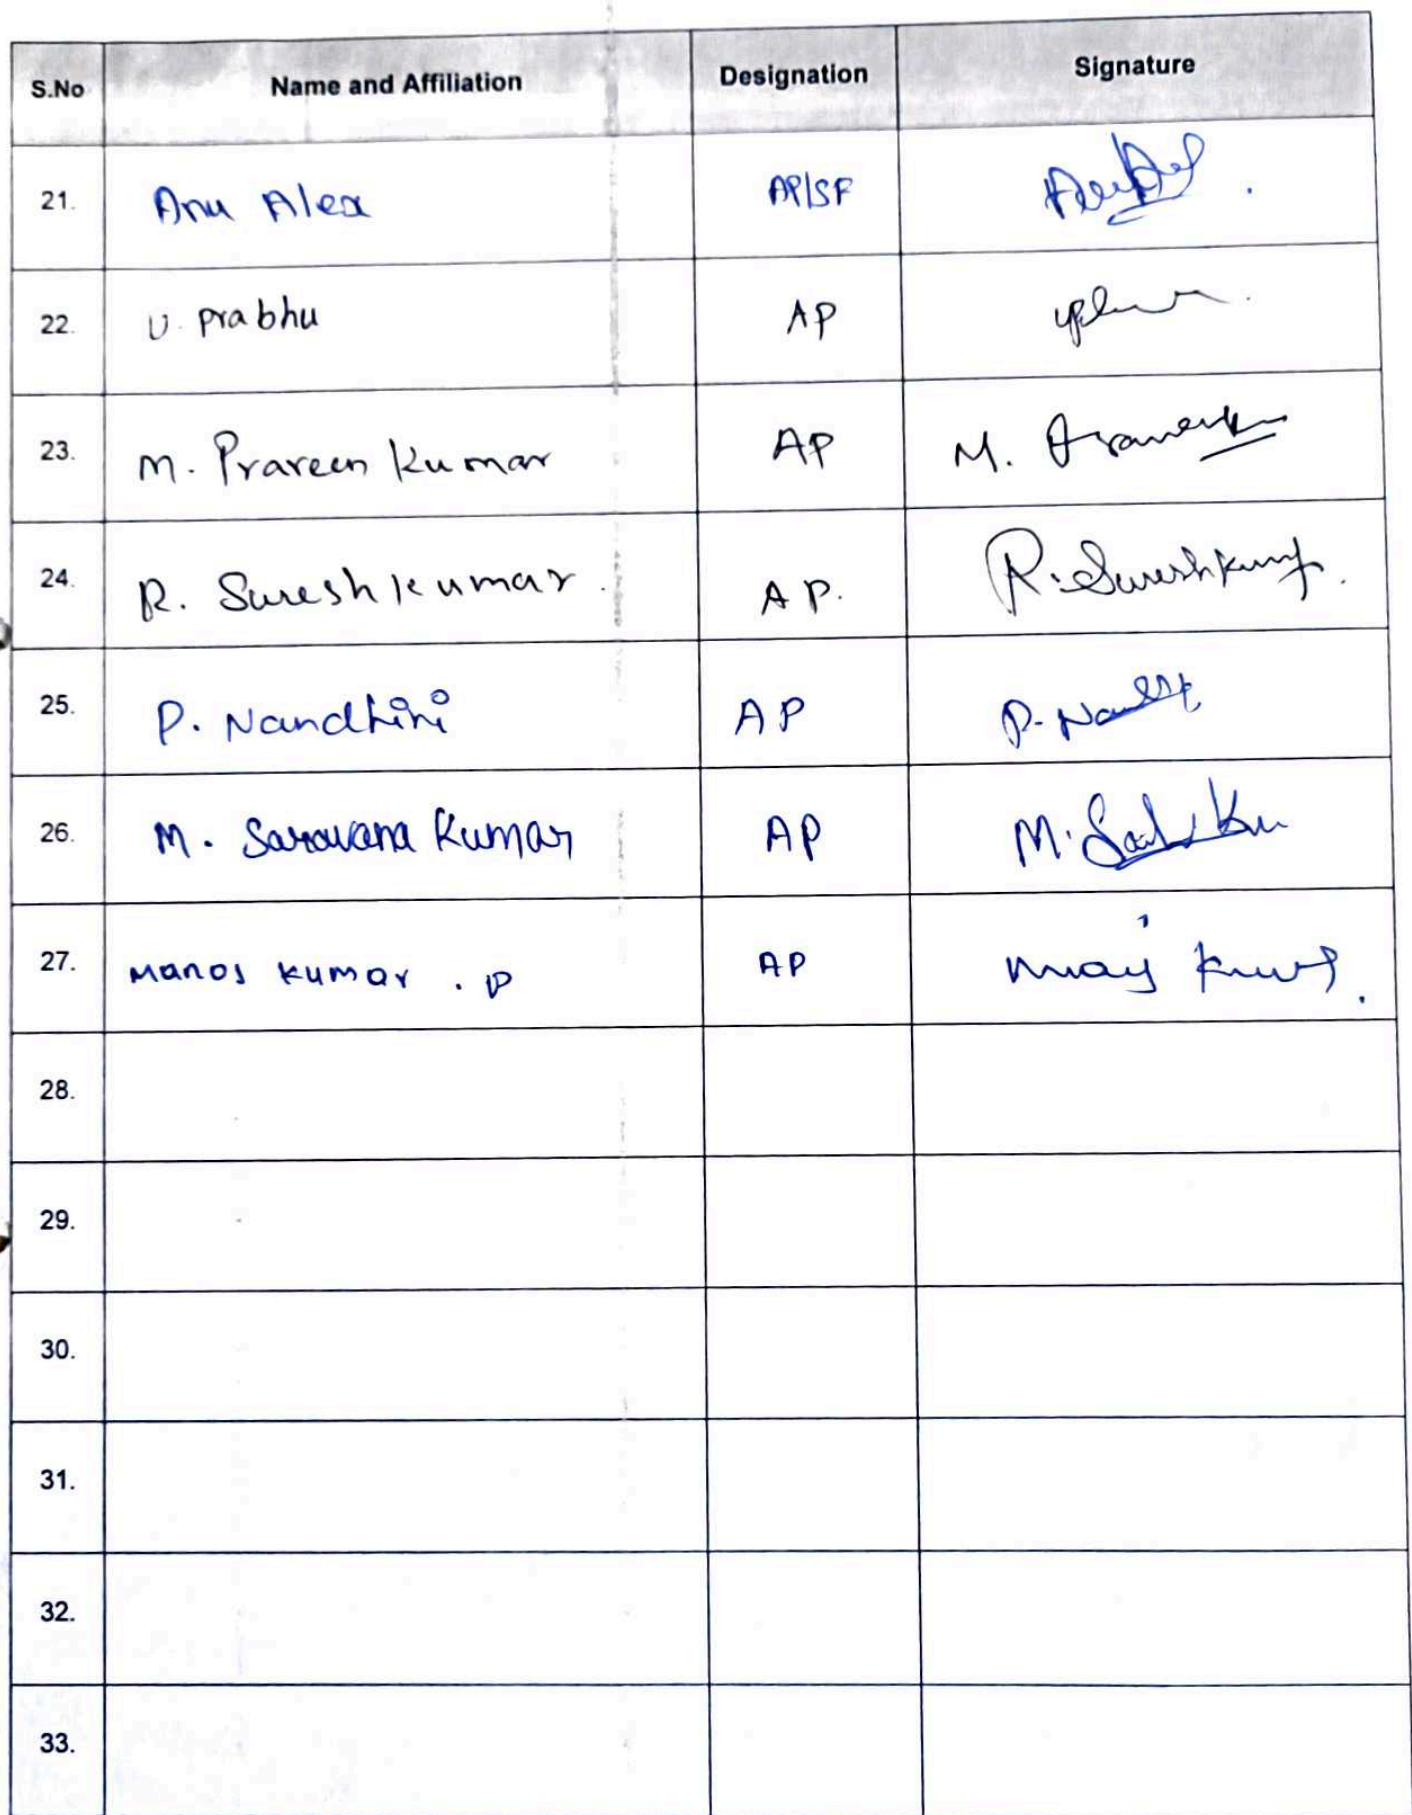 S.No Name and Affiliation Designation Signature
21. Anu Alex AP/SF
22. U. Prabhu AP
23. M. Praveen Kumar AP M.
24. R. Sureshkumar. AP. R. Sureshkumar.
25. P. Nandhini AP P.
26. M. Saravana Kumar AP M.
27. Manoj Kumar . P AP
28.
29.
30.
31.
32.
33.